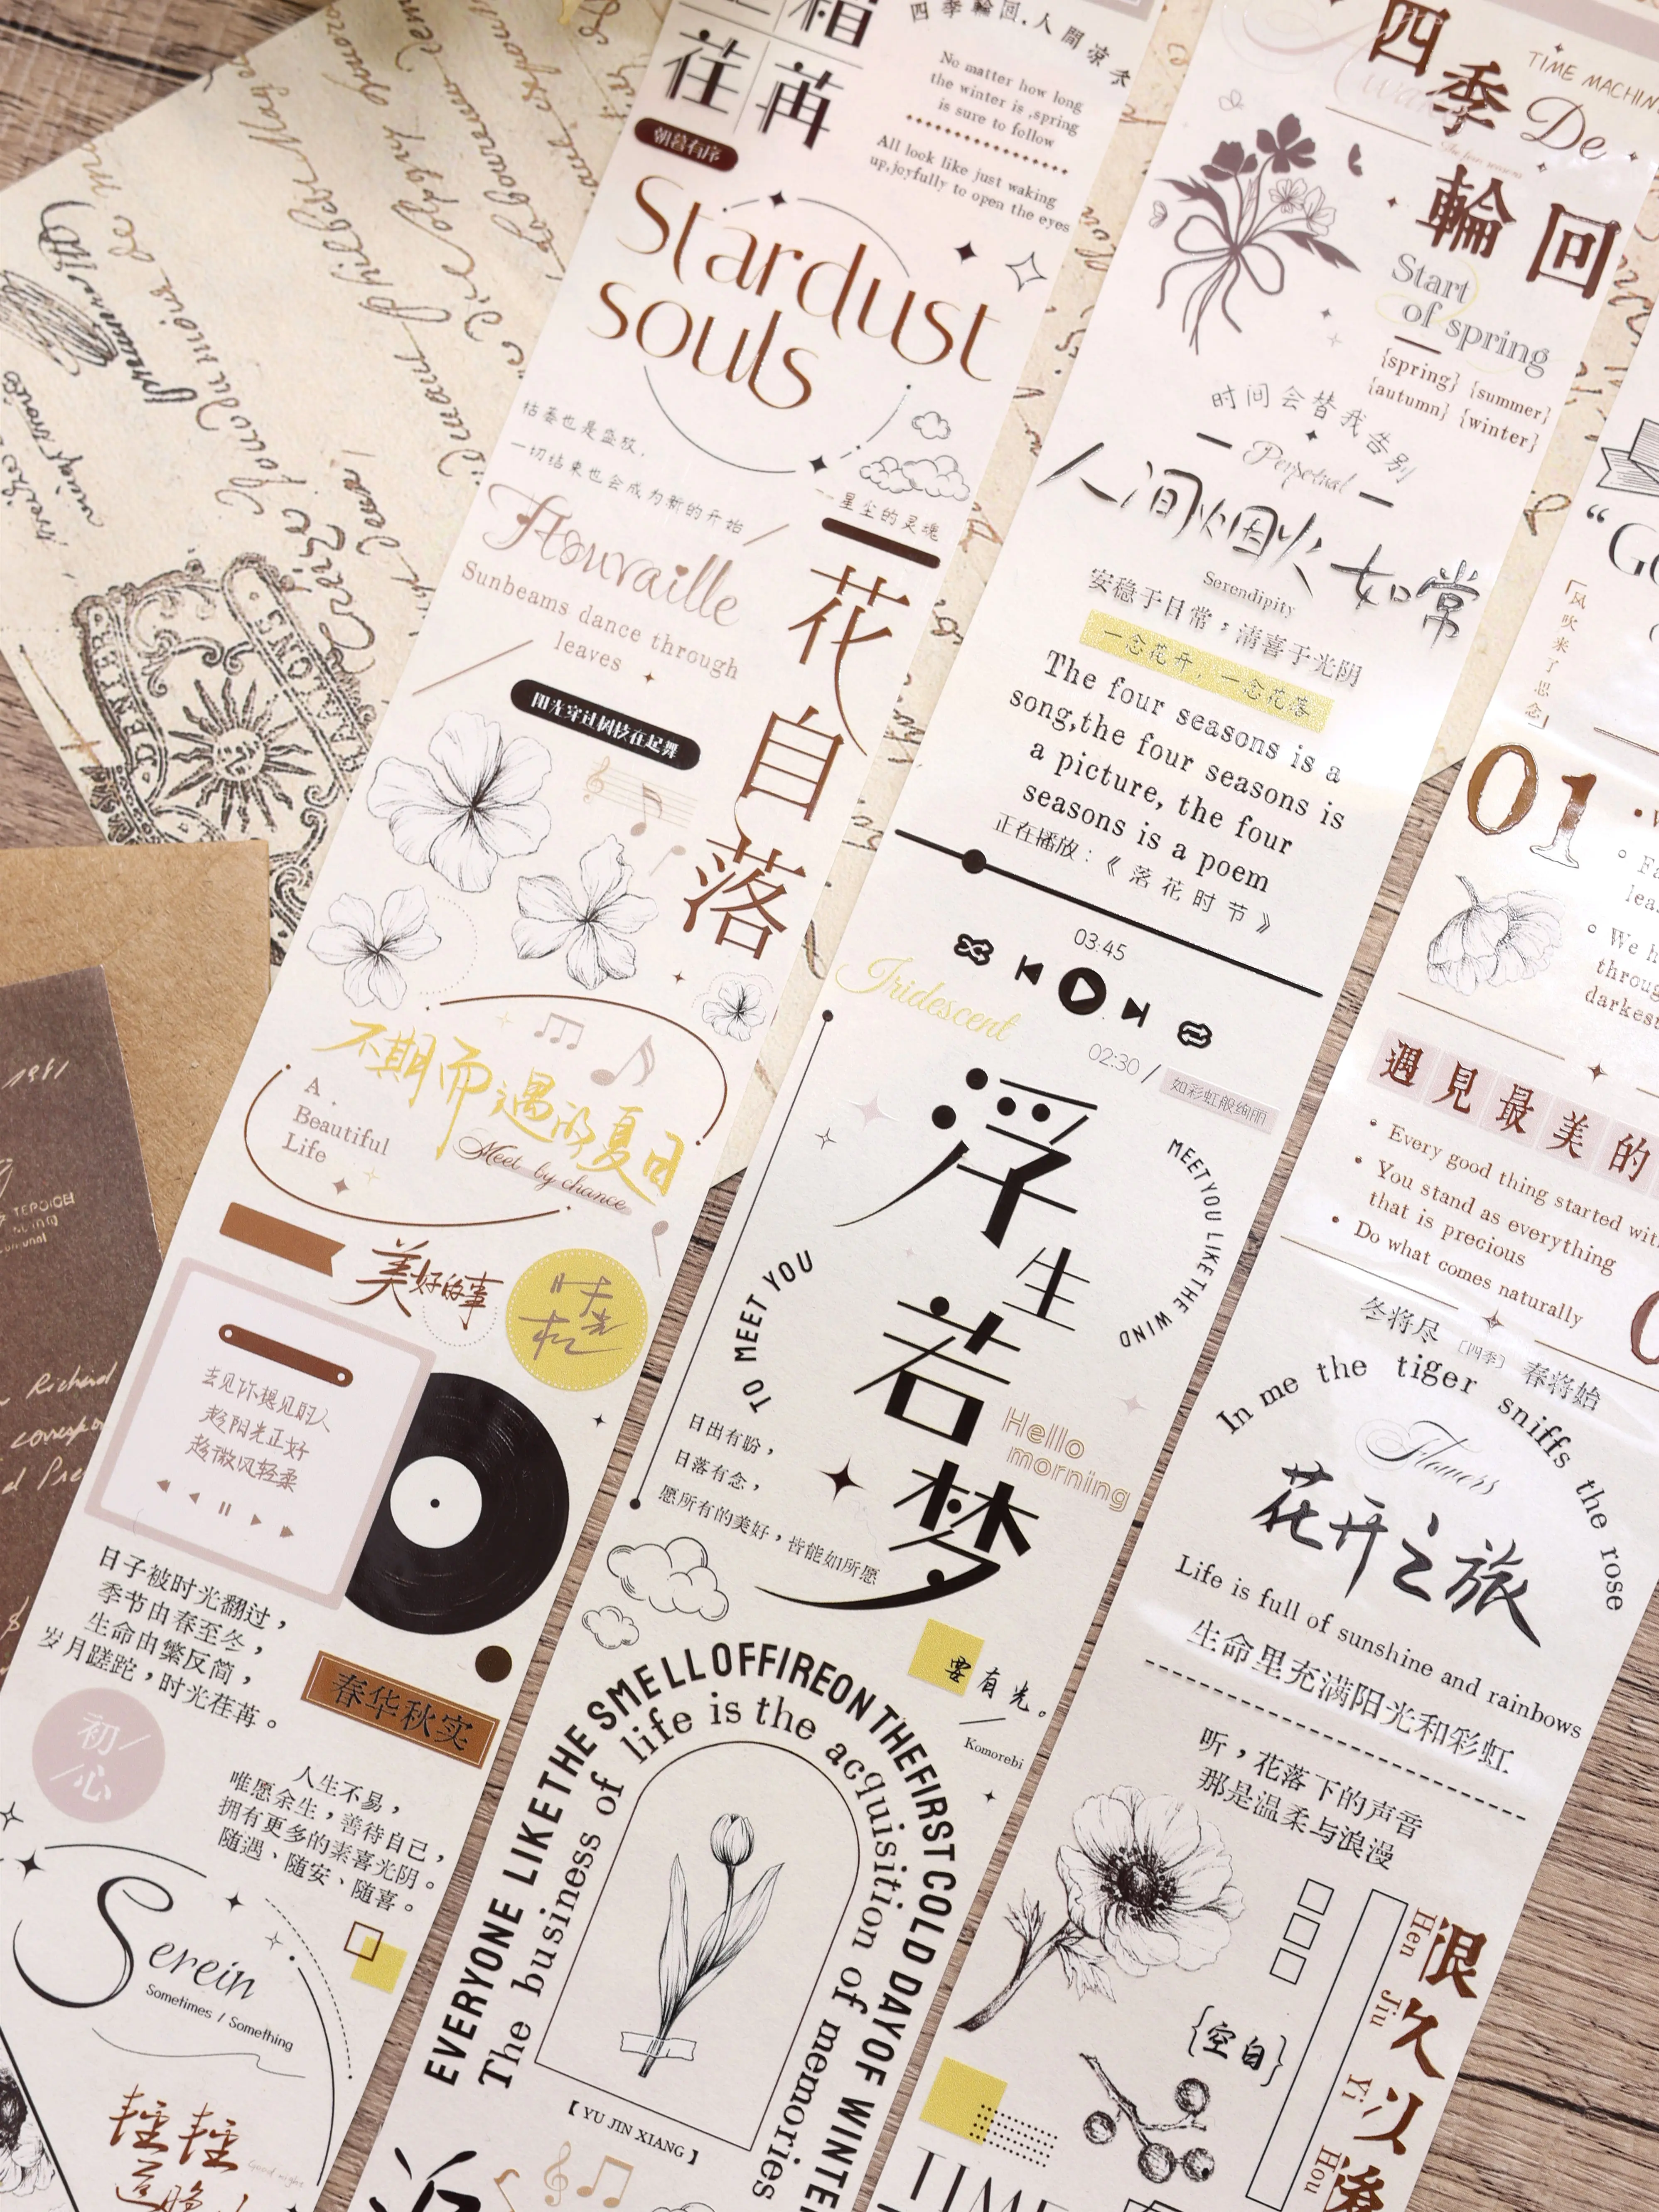 荏苒
朝暮有序
四季輪回,人間凉冬
No matter how long
the winter is ,spring
is sure to follow
All look like just waking
up,joyfully to open the eyes
Stardust
souls
枯萎也是盛放,
一切结束也会成为新的开始
星尘的灵魂
Sunbeams dance through
leaves
阳光穿过树枝在起舞
花自落
不期而遇的夏日
A
Beautiful
Life
Meet by chance
美好的事
时光机
去见你想见的人
趁阳光正好
趁微风轻柔
日子被时光翻过，
季节由春至冬，
生命由繁反简，
岁月蹉跎，时光荏苒。
春华秋实
初心
人生不易，
唯愿余生，善待自己，
拥有更多的素喜光阴。
随遇、随安、随喜。
Serein
Sometimes / Something
輕輕
四季De
輪回
TIME MACHIN
Start
of spring
{spring} {summer}
{autumn} {winter}
时间会替我告别
Perpetual
人间烟火如常
Serendipity
安稳于日常，清喜于光阴
一念花开,一念花落
The four seasons is a
song,the four seasons is
a picture, the four
seasons is a poem
正在播放：《落花时节》
03:45
Iridescent
02:30 /
如彩虹般绚丽
浮生若梦
MEET YOU LIKE THE WIND
TO MEET YOU
Hello
morning
日出有盼，
日落有念，
愿所有的美好，皆能如所愿
要有光。
Komorebi
EVERYONE LIKE THE SMELL OF FIRE ON THE FIRST COLD DAY OF WINTE
The business of life is the acquisition of memories
【 YU JIN XIANG 】
「风吹来了思念」
01
遇見最美的
Every good thing started wit
You stand as everything
that is precious
Do what comes naturally
冬将尽 [四季] 春将始
In me the tiger sniffs the rose
Flowers
花开之旅
Life is full of sunshine and rainbows
生命里充满阳光和彩虹
听，花落下的声音
那是温柔与浪漫
{空白}
很久以後
Hen Jiu Yi Hou
TIME